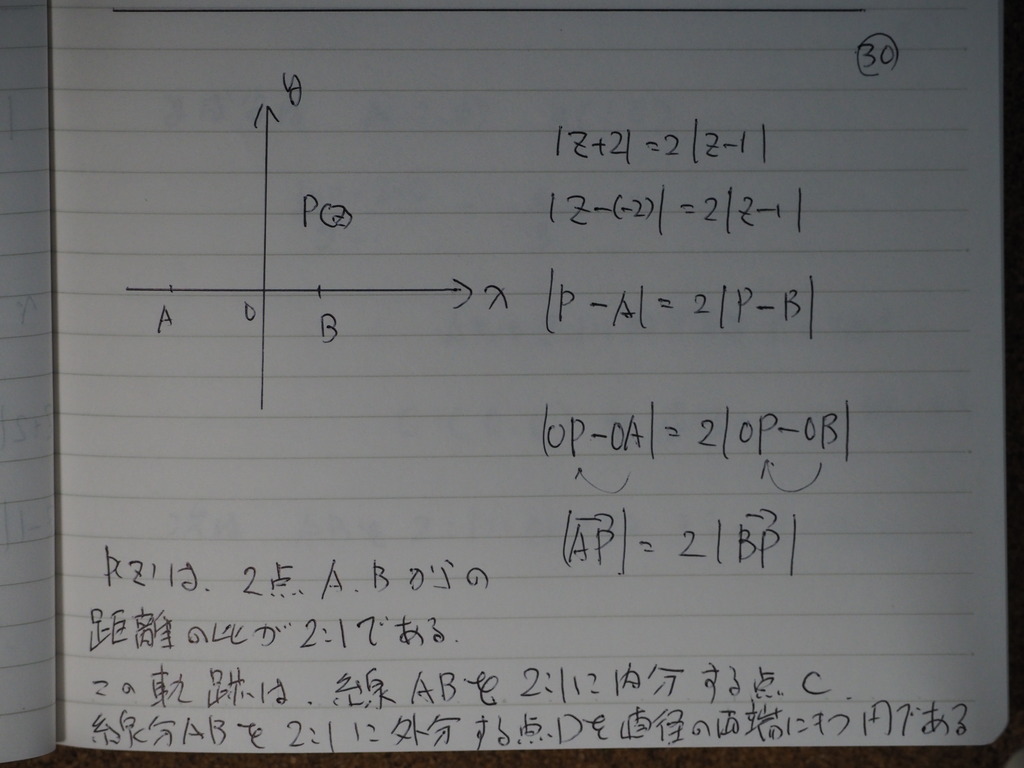 30
y
P(z)
A
O
B
x
|z+2|=2|z-1|
|z-(-2)|=2|z-1|
|P-A|=2|P-B|
|OP-OA|=2|OP-OB|
|AP→|=2|BP→|
P(z)は、2点A.Bからの
距離の比が2:1である.
この軌跡は、線ABを2:1に内分する点C.
線分ABを2:1に外分する点Dを直径の両端にもつ円である